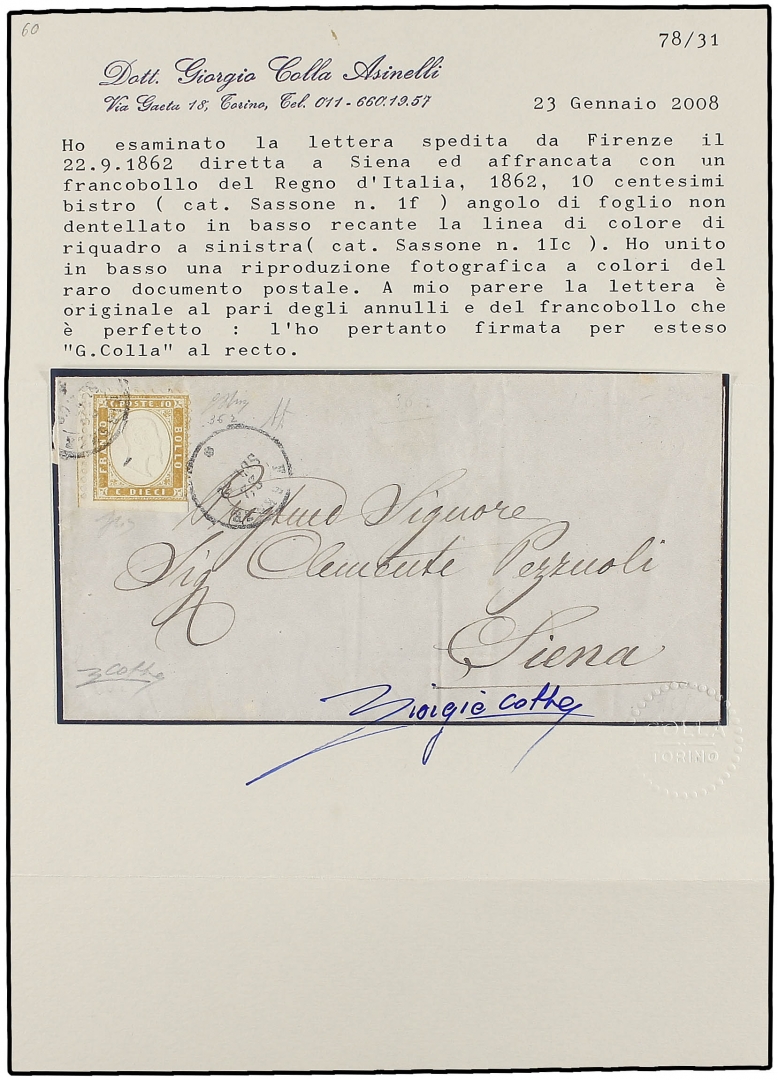 60
78/31
Dott. Giorgio Colla Asinelli
Via Gaeta 18, Torino, Tel. 011-660.19.57
23 Gennaio 2008
Ho esaminato la lettera spedita da Firenze il
22.9.1862 diretta a Siena ed affrancata con un
francobollo del Regno d'Italia, 1862, 10 centesimi
bistro ( cat. Sassone n. 1f ) angolo di foglio non
dentellato in basso recante la linea di colore di
riquadro a sinistra( cat. Sassone n. 1Ic ). Ho unito
in basso una riproduzione fotografica a colori del
raro documento postale. A mio parere la lettera è
originale al pari degli annulli e del francobollo che
è perfetto : l'ho pertanto firmata per esteso
"G.Colla" al recto.
C. POSTE 10
FRANCO
BOLLO
C DIECI
362
Signore
Sig Clemente Pezzuoli
Siena
G Colla
Giorgio Colla
COLLA
TORINO